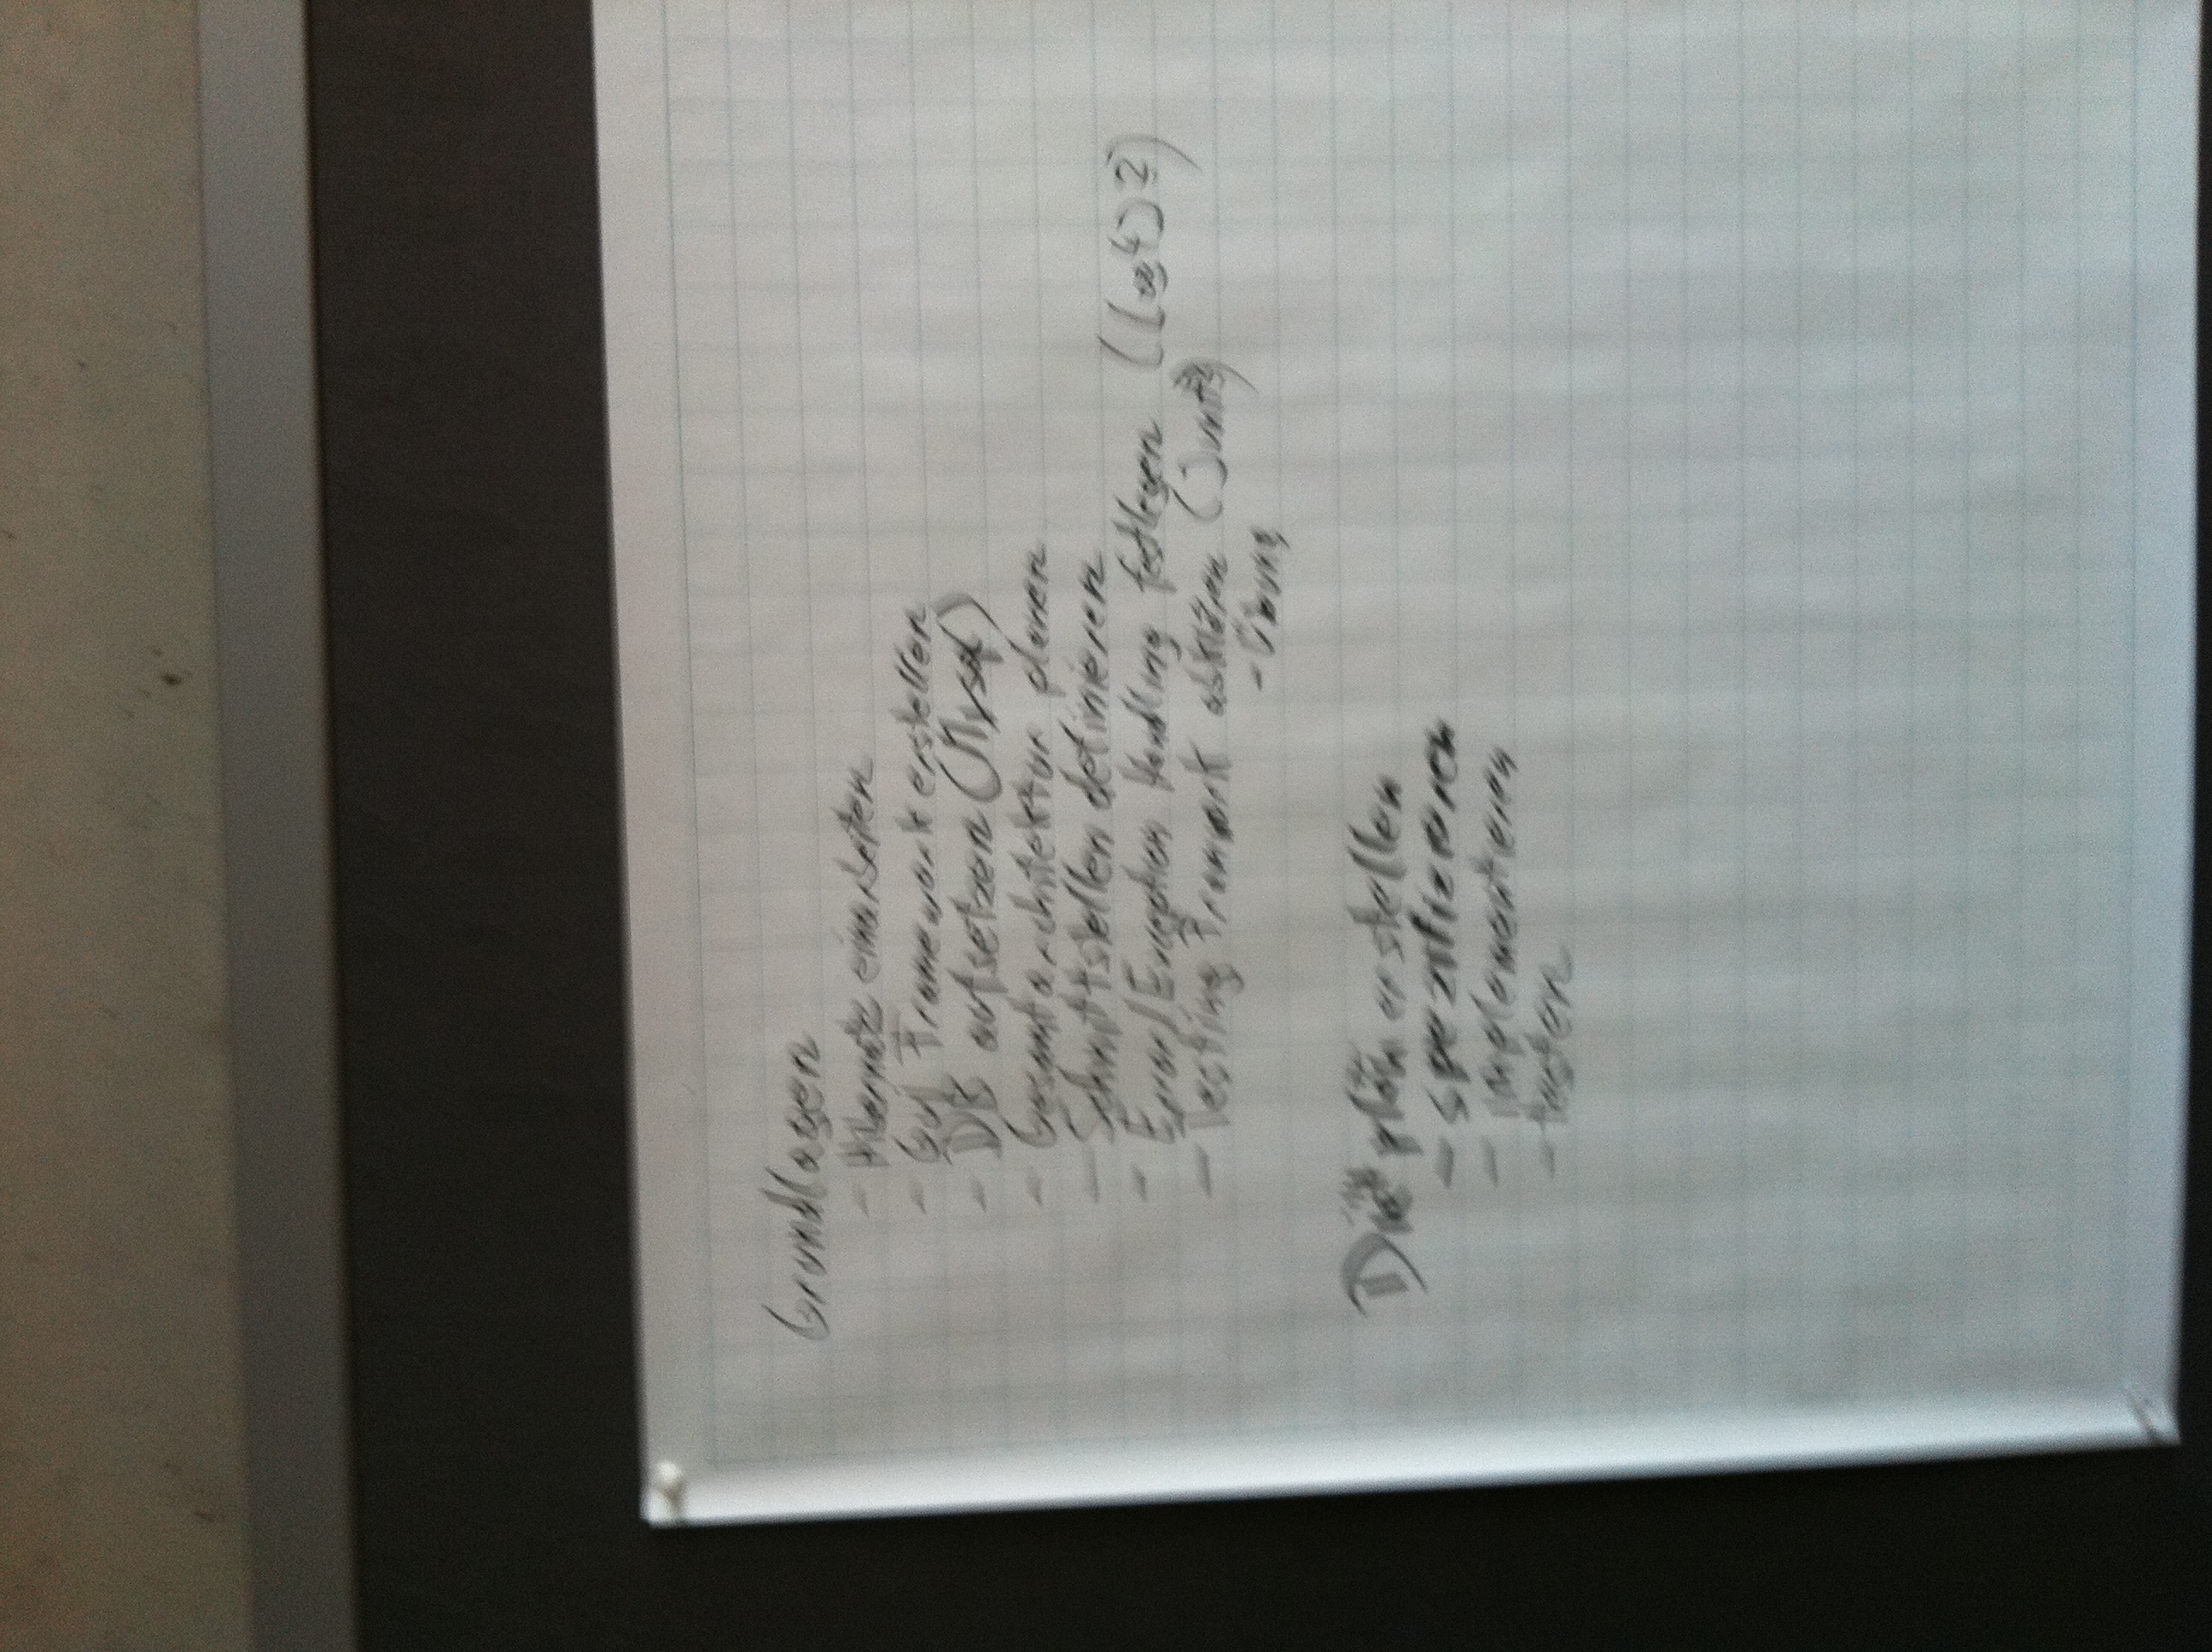 Grundlagen
- Hibernate einarbeiten
- GUI Framework erstellen
- DB aufsetzen (Mysql)
- Gesamtarchitektur planen
- Schnittstellen definieren
- Error/Exception Handling festlegen ((log4J?)
- Testing Framwork abklären (Junit)
- Übung
Diätplan erstellen
- spezifizieren
- implementieren
- testen